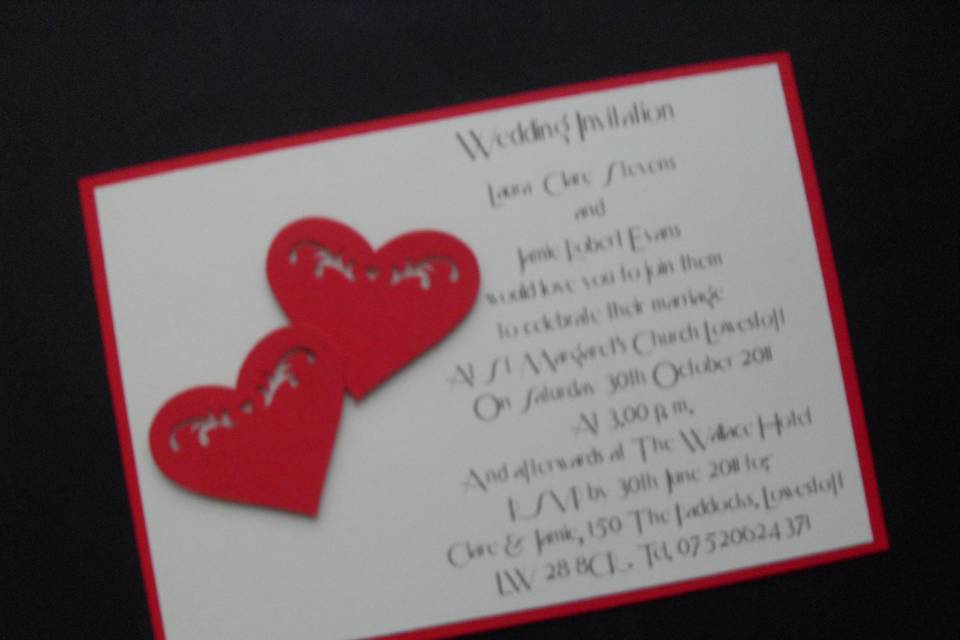 Wedding Invitation
Laura Clare Stevens
and
Jamie Robert Evans
would love you to join them
to celebrate their marriage
At St Margaret's Church Lowestoft
On Saturday 30th October 2011
At 3.00 p.m.
And afterwards at The Wallace Hotel
RSVP by 30th June 2011 to;
Clare & Jamie, 150 The Paddocks, Lowestoft
LW 28 8CR. Tel, 07520624371